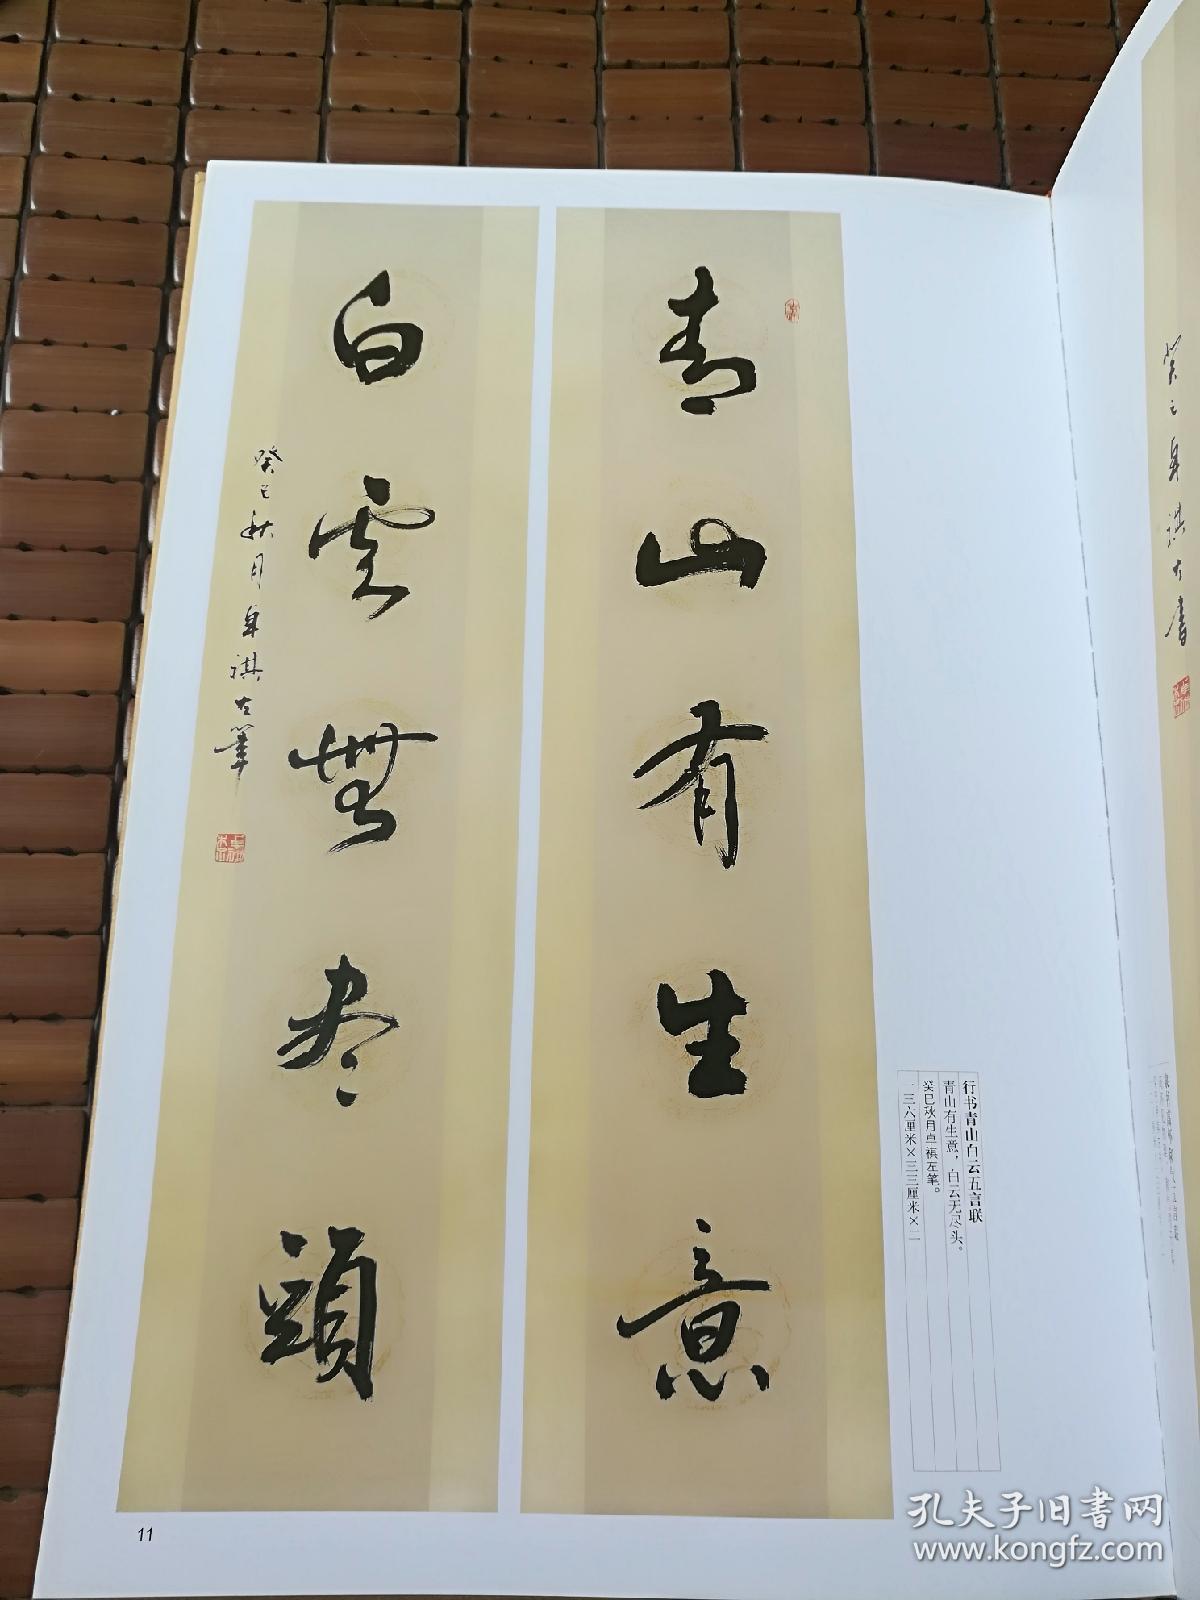 青山有生意
白雲無盡頭
癸巳秋月卓祺左筆
行书青山白云五言联
青山有生意，白云无尽头。
癸巳秋月卓祺左笔。
一三六厘米×三三厘米×二
癸巳卓祺左書
11
孔夫子旧书网
www.kongfz.com